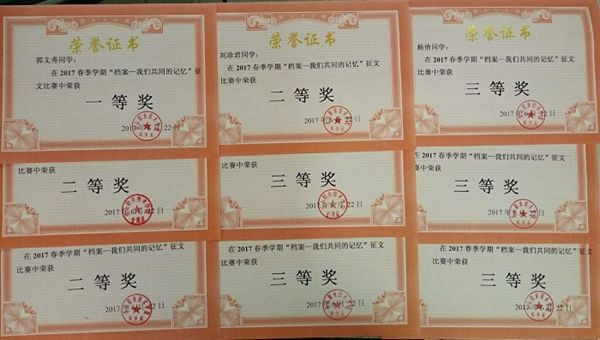 荣誉证书
郭文秀同学：
在 2017 春季学期“档案—我们共同的记忆”征
文比赛中荣获
一等奖
2017 年 6 月 22 日
荣誉证书
刘珍君同学：
在 2017 春季学期“档案—我们共同的记忆”征
文比赛中荣获
二等奖
2017 年 6 月 22 日
荣誉证书
杨倩同学：
在 2017 春季学期“档案—我们共同的记忆”征文
比赛中荣获
三等奖
2017 年 6 月 22 日
比赛中荣获
二等奖
2017 年 6 月 22 日
比赛中荣获
三等奖
2017 年 6 月 22 日
在 2017 春季学期“档案—我们共同的记忆”征文
比赛中荣获
三等奖
2017 年 6 月 22 日
在 2017 春季学期“档案—我们共同的记忆”征文
比赛中荣获
二等奖
2017 年 6 月 22 日
在 2017 春季学期“档案—我们共同的记忆”征文
比赛中荣获
三等奖
2017 年 6 月 22 日
在 2017 春季学期“档案—我们共同的记忆”征文
比赛中荣获
三等奖
2017 年 6 月 22 日